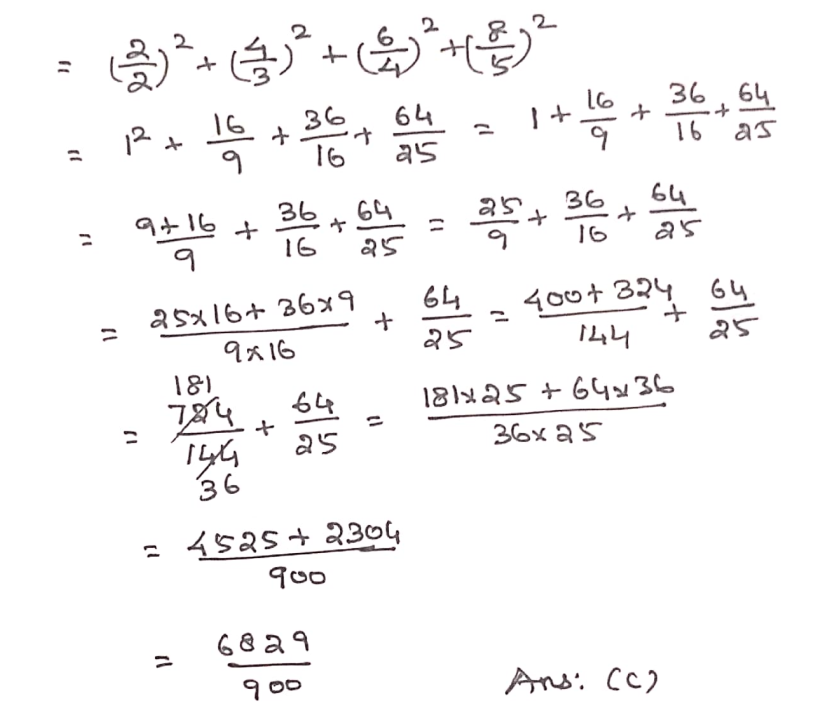 = (2/2)² + (4/3)² + (6/4)² + (8/5)²
= 1² + 16/9 + 36/16 + 64/25 = 1 + 16/9 + 36/16 + 64/25
= 9+16/9 + 36/16 + 64/25 = 25/9 + 36/16 + 64/25
= 25x16+ 36x9/9x16 + 64/25 = 400+ 324/144 + 64/25
181
= 724/144 + 64/25 = 181x25 + 64x36/36x25
36
= 4525+ 2304/900
= 6829/900 Ans: (C)